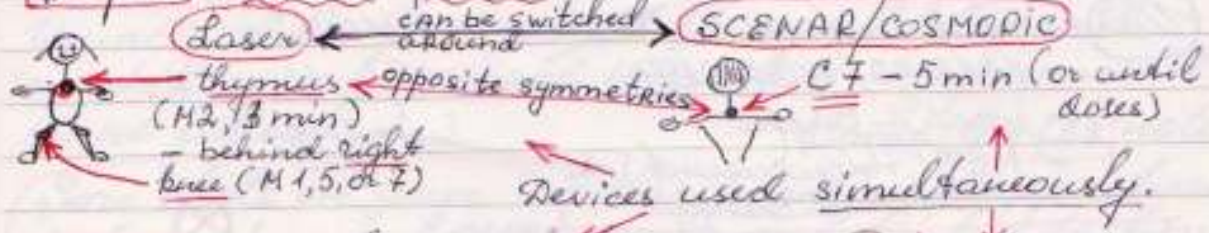 Laser can be switched around SCENAR/COSMODIC
thymus opposite symmetries C7 - 5 min (or until
(M2, 3 min) doses)
- behind right
knee (M1, 5, or 7) Devices used simultaneously.